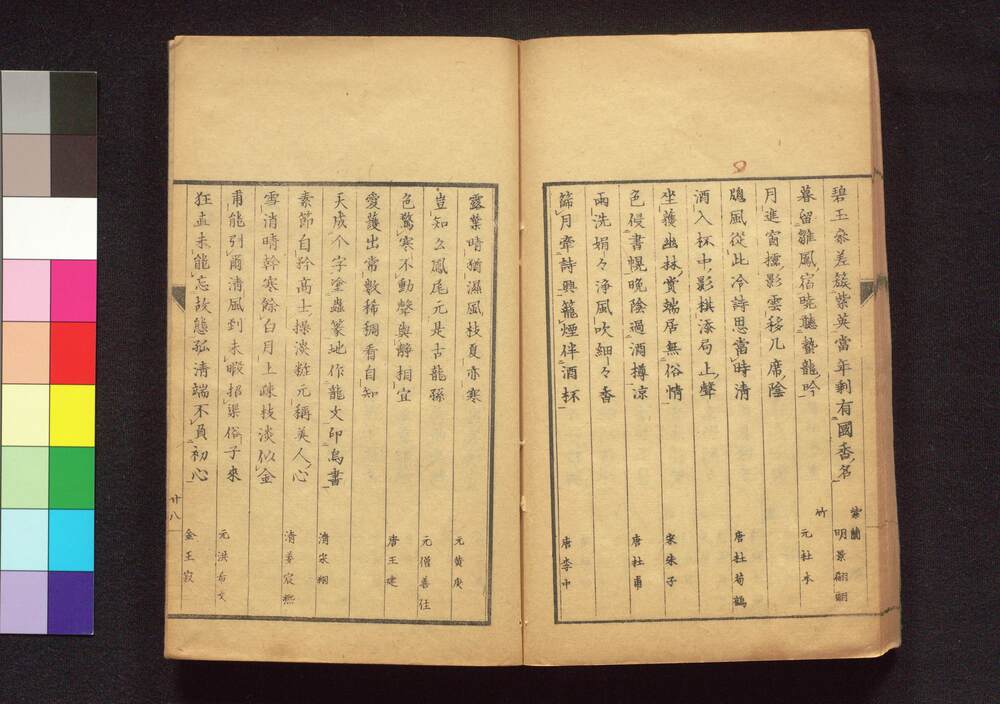 碧玉參差簇紫英當年剩有國香名 紫蘭 明景翩翩
暮留雛鳳宿曉聽蟄龍吟 竹 元杜本
月進窗櫺影雲移几席陰
牕風從此冷詩思當時清 唐杜荀鶴
酒入杯中影棋添局上聲
坐穫幽林賞端居無俗情 宋朱子
色侵書幌晚陰過酒樽涼 唐杜甫
雨洗娟々淨風吹細々香
篩月牽詩興籠煙伴酒杯 唐李中
露葉晴猶濕風枝夏亦寒 元黄庚
豈知么鳳尾元是古龍孫 元僧善住
色驚寒不動聲與靜相宜
愛護出常數稀稠看自知 唐王建
天成个字塗蟲篆地作龍文印鳥書 清宋
素節自矜高士操淡粧元稱美人心 清姜宸熙
雪消晴幹寒餘白月上疎枝淡似金
甫能引爾清風到未暇招渠俗子來 元洪希文
狂直未能忘故態孤清端不負初心 金王寂
廿八